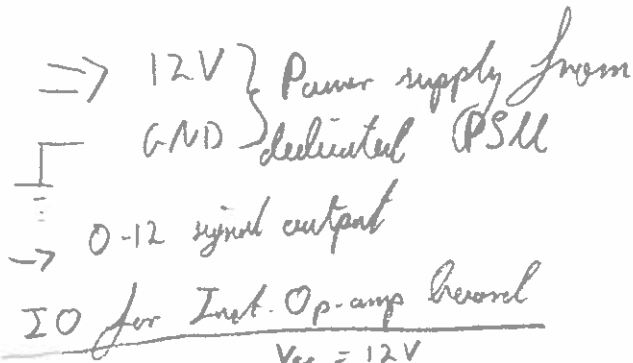 ⇒ 12V } Power supply from
GND } dedicated PSU
→ 0-12 signal output
IO for Inst. Op-amp board
Vcc = 12V